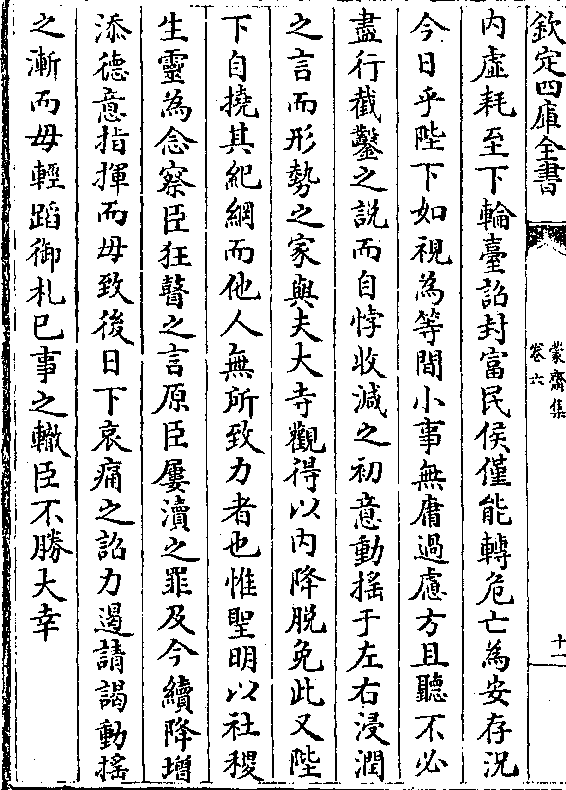 欽定四庫全書
蒙齋集
卷六
十一
内虚耗至下輪臺詔封富民侯僅能轉危亡為安存況
今日乎陛下如視為等閒小事無庸過慮方且聽不必
盡行截鑿之説而自悖收減之初意動搖于左右浸潤
之言而形勢之家與夫大寺觀得以内降脱免此又陛
下自撓其紀綱而他人無所致力者也惟聖明以社稷
生靈為念察臣狂瞽之言原臣屢瀆之罪及今續降增
添德意指揮而毋致後日下哀痛之詔力遏請謁動摇
之漸而毋輕蹈御札已事之轍臣不勝大幸